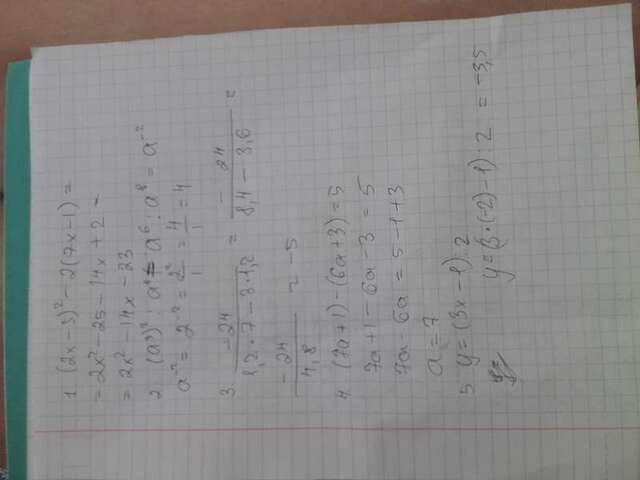 1 (2x - 5)² - 2(7x - 1) =
= 2x² - 25 - 14x + 2 =
= 2x² - 14x - 23
2 (a³)² : a⁸ = a⁶ : a⁸ = a⁻²
a⁻² = 2⁻² = 2² / 1 = 4 / 1 = 4
3. -24 / 1,2 · 7 - 3 · 1,2 = - 24 / 8,4 - 3,6 =
-24 / 4,8 = -5
4 (7a + 1) - (6a + 3) = 5
7a + 1 - 6a - 3 = 5
7a - 6a = 5 - 1 + 3
a = 7
5 y = (3x - 1) : 2
y = (3 · (-2) - 1) : 2 = -3,5